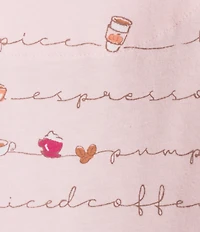 pice
espresso
pump
icedcoffe